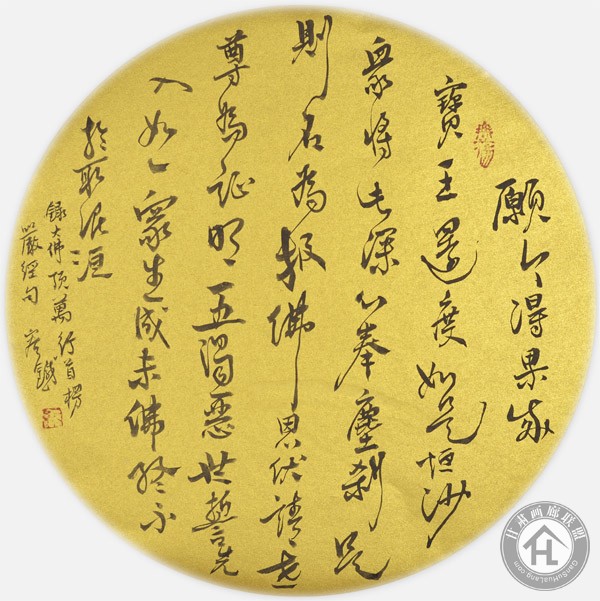 願今得果成
寶王還度如是恒沙
眾將此深心奉塵剎是
則名為報佛恩伏請世
尊為証明五濁惡世誓先
入如一眾生成未佛終不
於取泥洹
錄大佛頂萬行首楞
嚴經句
甘肃画廊联盟
GanSuHuaLang.com